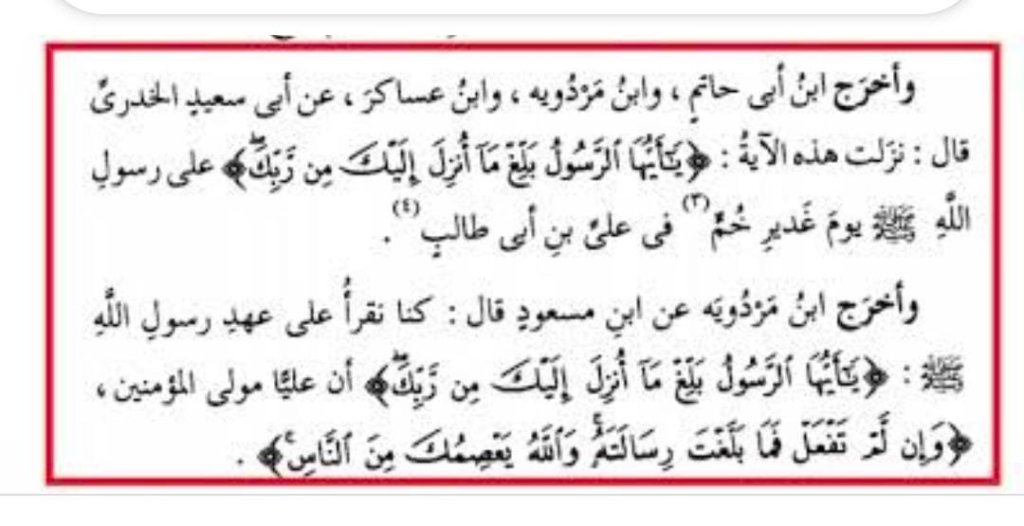 وأخرَج ابنُ أبى حاتمٍ ، وابنُ مَرْدُويه ، وابنُ عساكرَ ، عن أبى سعيدٍ الخدرىِّ
قال : نزَلت هذه الآيةُ : ﴿يَٰٓأَيُّهَا ٱلرَّسُولُ بَلِّغْ مَآ أُنزِلَ إِلَيْكَ مِن رَّبِّكَۖ﴾ على رسولِ
اللَّهِ ﷺ يومَ غَديرِ خُمٍّ(٣) فى علىِّ بنِ أبى طالبٍ(٤) .
وأخرَج ابنُ مَرْدُويَه عن ابنِ مسعودٍ قال : كنا نقرأُ على عهدِ رسولِ اللَّهِ
ﷺ : ﴿يَٰٓأَيُّهَا ٱلرَّسُولُ بَلِّغْ مَآ أُنزِلَ إِلَيْكَ مِن رَّبِّكَۖ﴾ أن عليًّا مولى المؤمنين ،
﴿وَإِن لَّمْ تَفْعَلْ فَمَا بَلَّغْتَ رِسَالَتَهُۥۚ وَٱللَّهُ يَعْصِمُكَ مِنَ ٱلنَّاسِۚ﴾ .